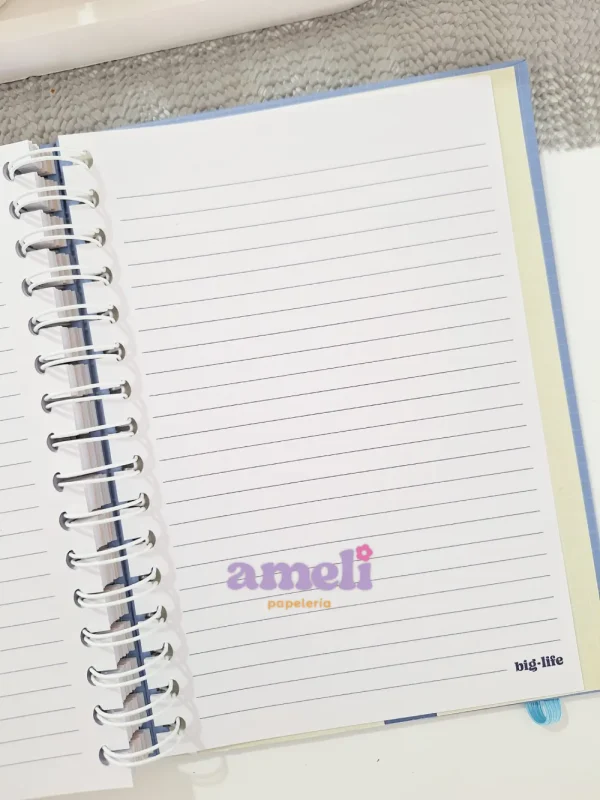 ameli
papelería
big-life